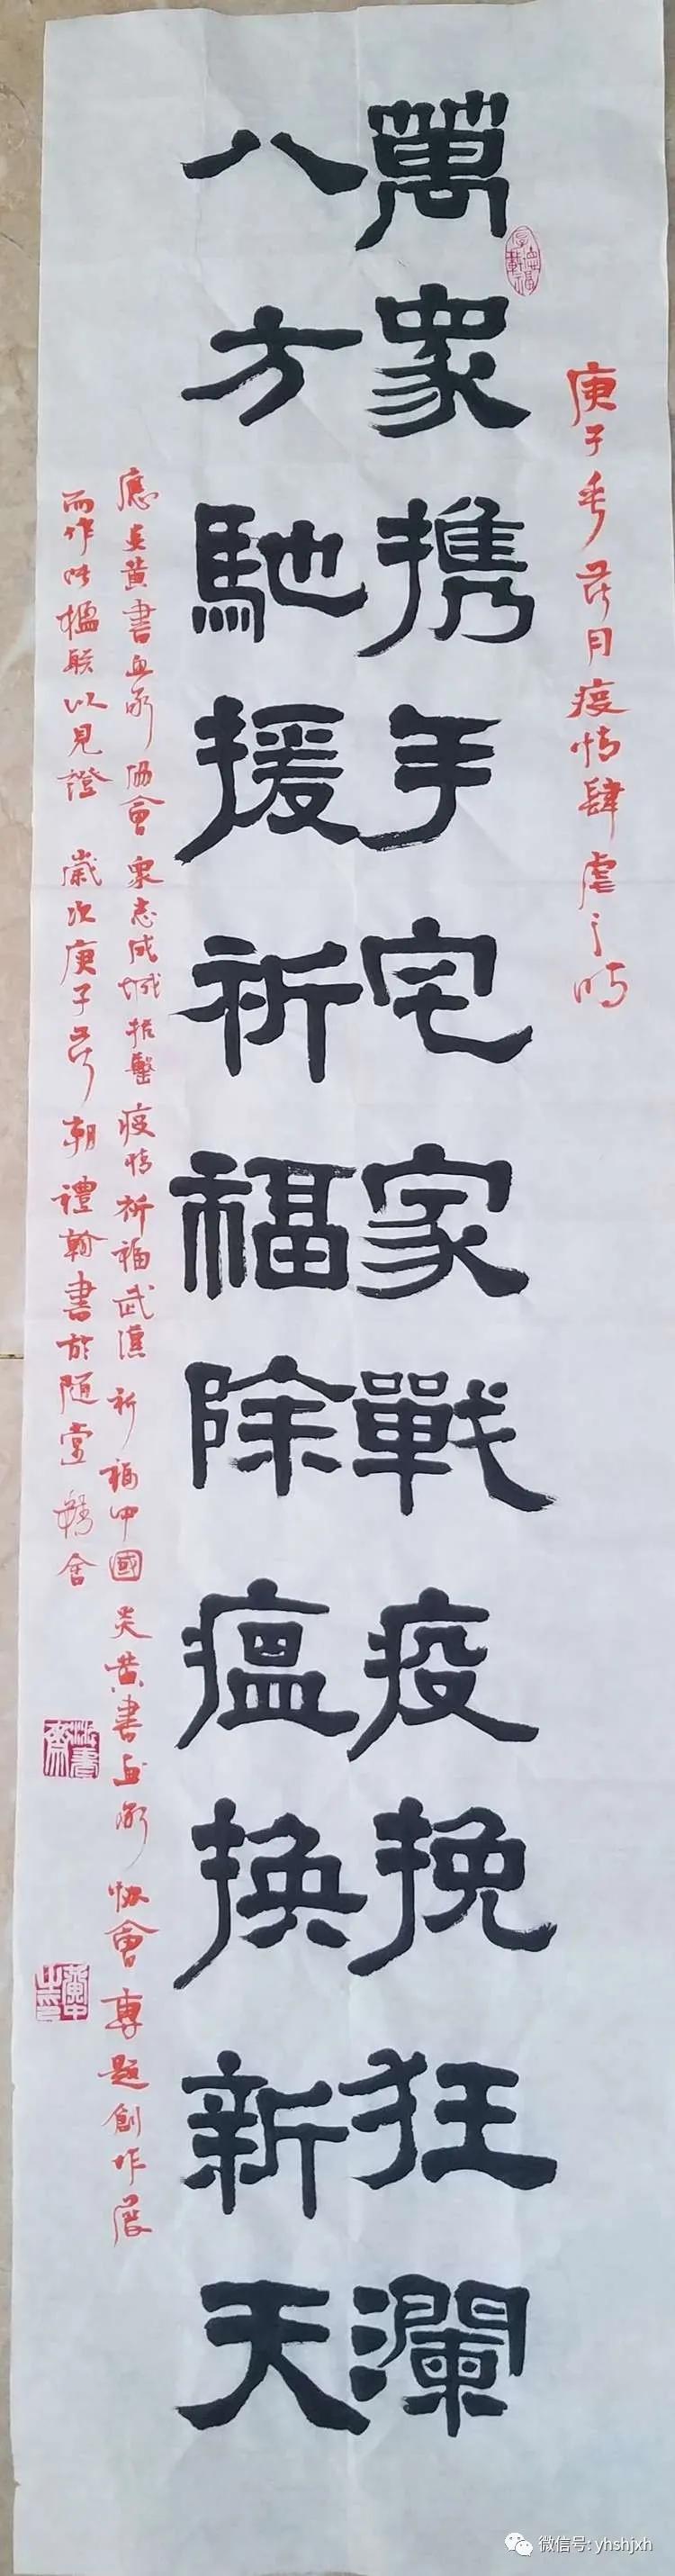 庚子年荷月疫情肆虐之時
萬眾携手宅家戰疫挽狂瀾
八方馳援祈福除瘟換新天
應炎黃書画家協會衆志成城抗擊疫情祈福武漢祈福中國炎黃書画家協會專題創作展
而作此楹联以見證 歲次庚子 朝禮翰書於随堂 舍
微信号: yhshjxh